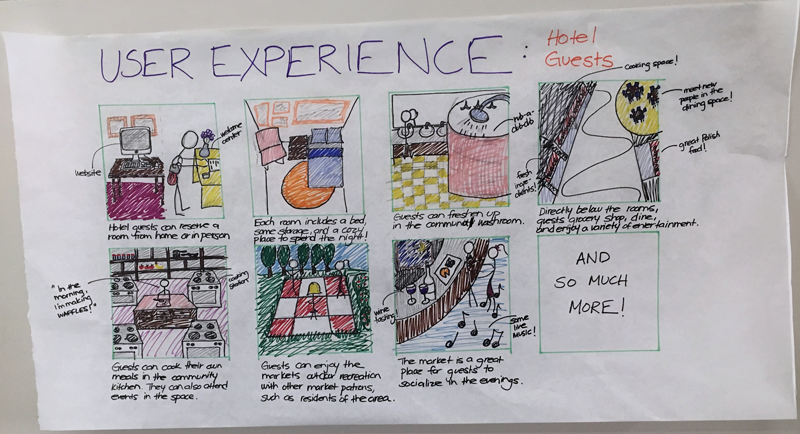 USER EXPERIENCE:
Hotel
Guests
website
welcome
center
Hotel guests can reserve a
room from home or in person
Each room includes a bed,
some storage, and a cozy
place to spend the night!
rub-a-
dub-dub
Guests can freshen up
in the community washroom.
cooking space!
meet new
people in the
dining space!
great Polish
food!
fresh
ingre-
dients!
Directly below the rooms,
guests grocery shop, dine,
and enjoy a variety of entertainment.
"In the
morning,
I'm making
WAFFLES!"
cooking
station
Guests can cook their own
meals in the community
kitchen. They can also attend
events in the space.
Guests can enjoy the
markets outdoor recreation
with other market patrons,
such as residents of the area.
wine
tasting
some
live
MUSIC!
The market is a great
place for guests to
socialize in the evenings.
AND
SO MUCH
MORE!